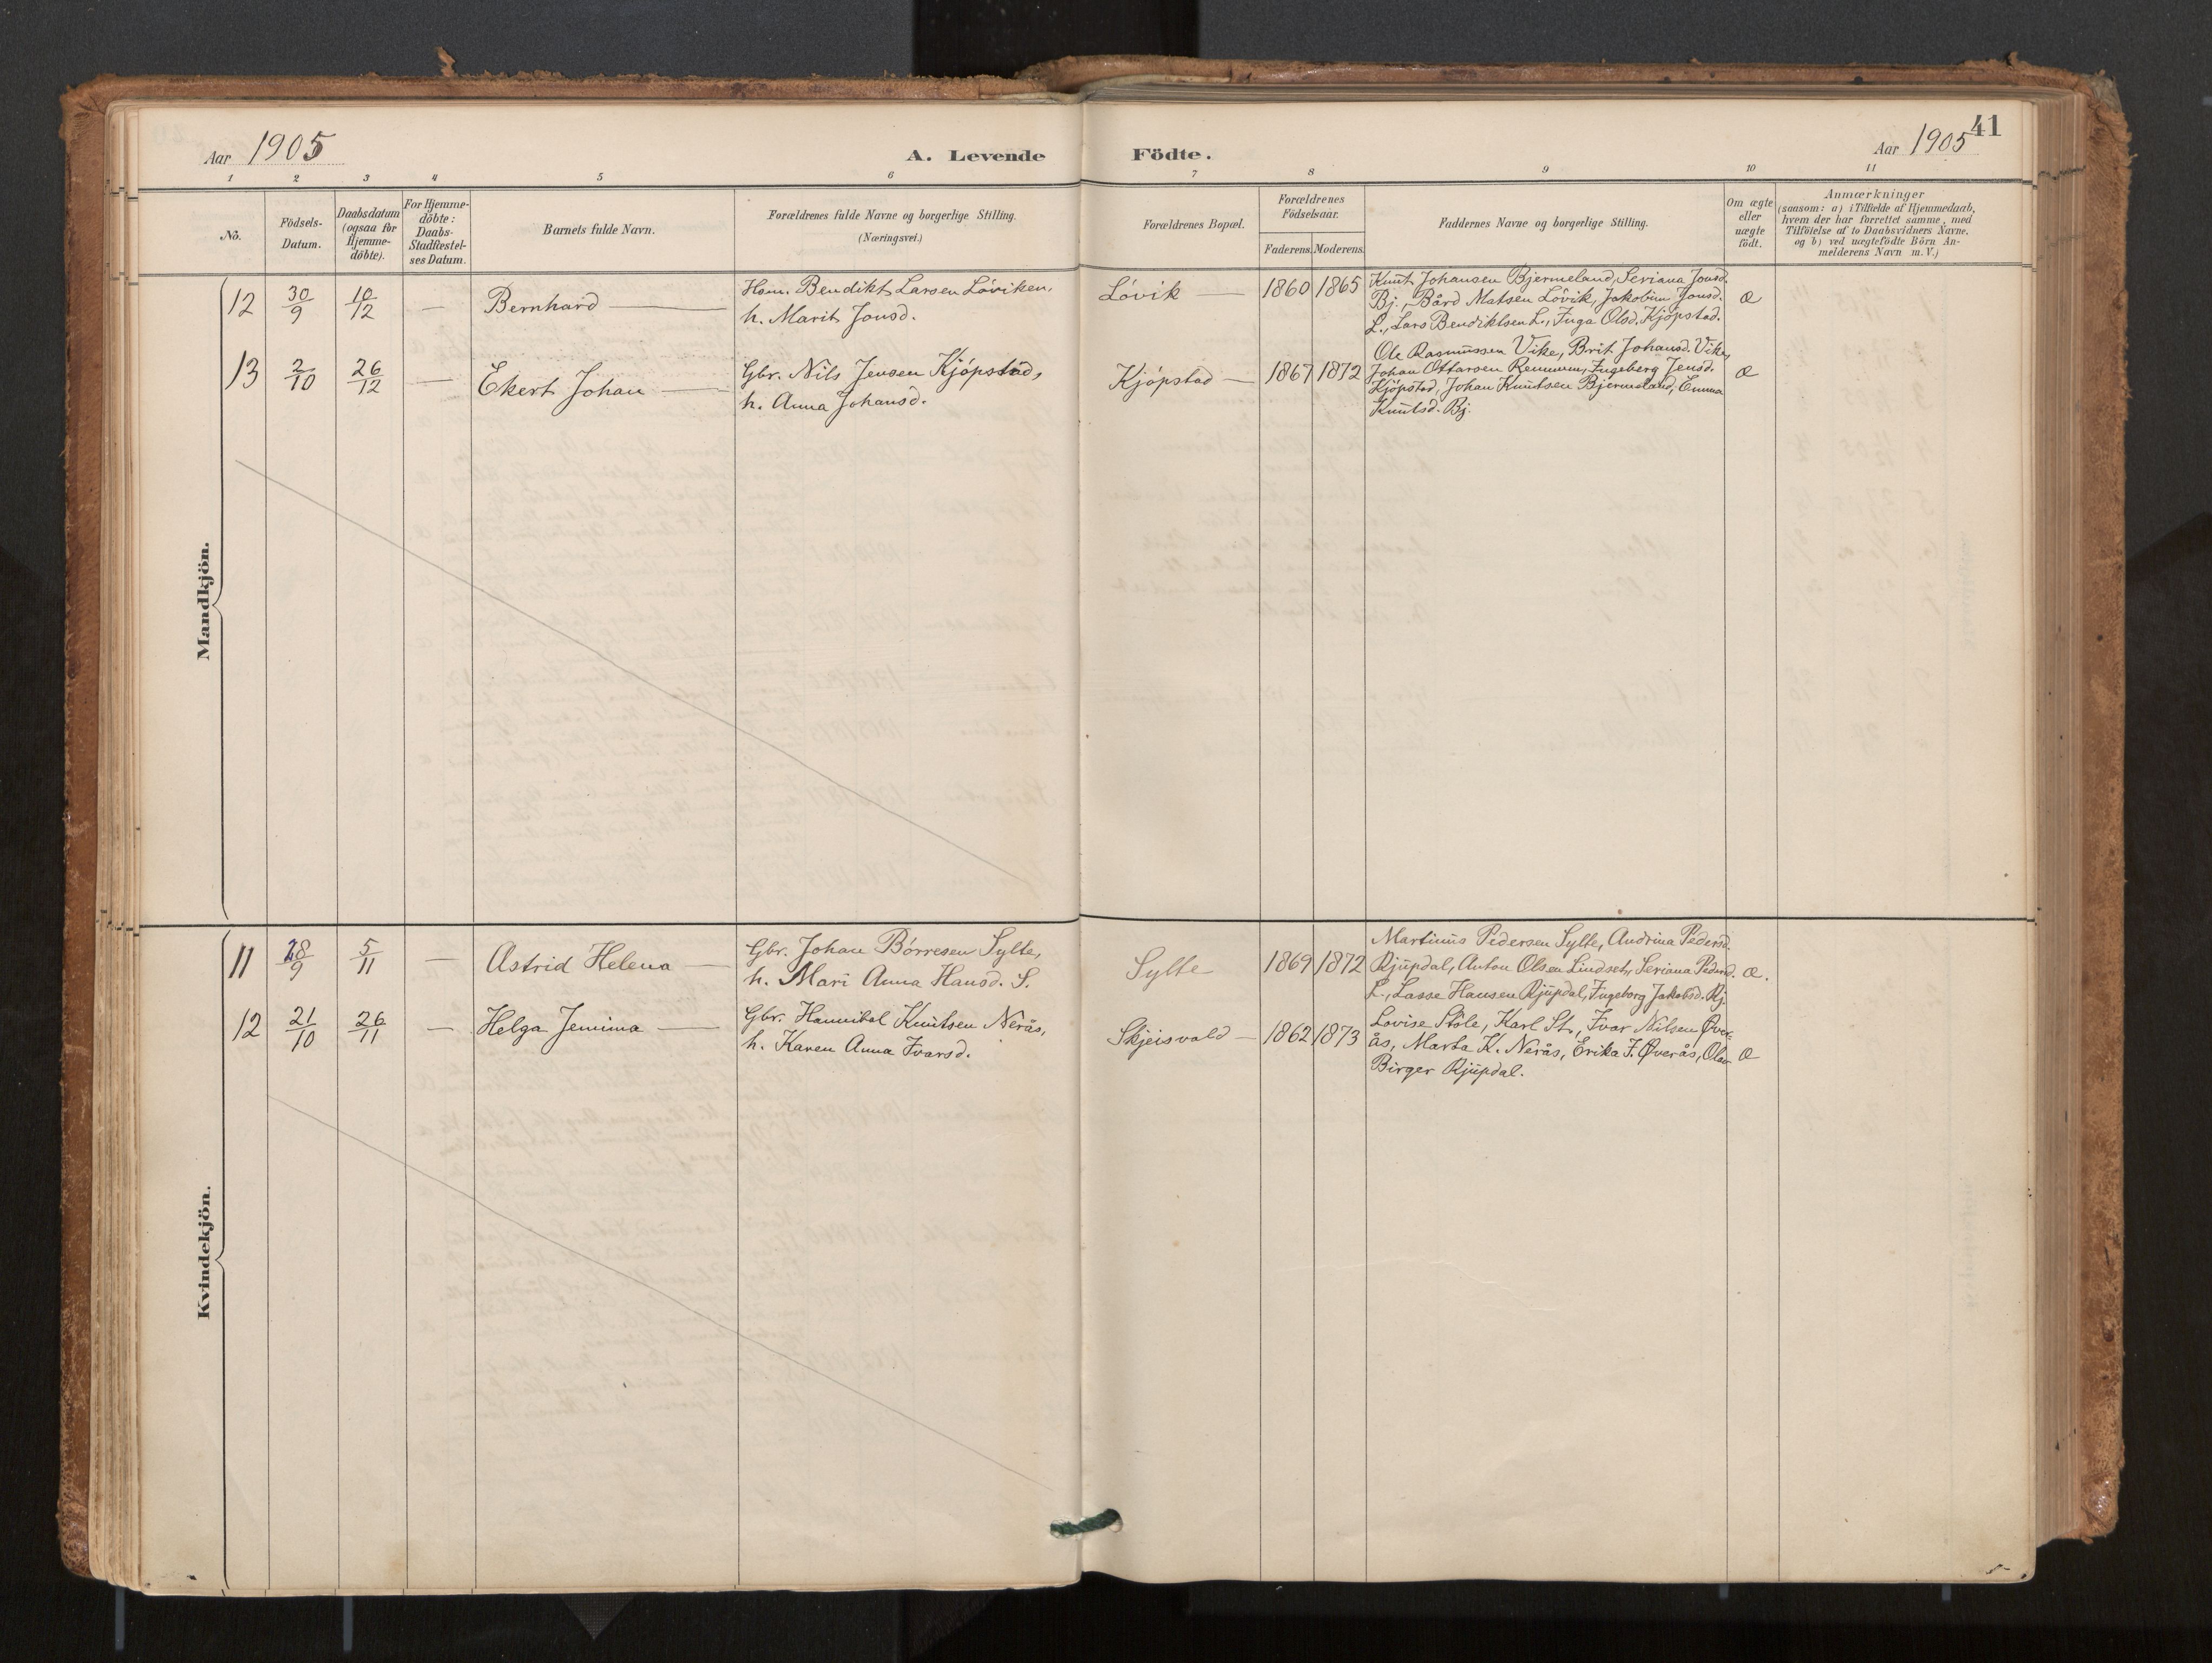 Aar 1905
A. Levende Födte.
Aar 1905
41
1 2 3 4 5 6 7 8 9 10 11
Nö.
Födsels-
Datum.
Daabsdatum
(ogsaa for
Hjemme-
döbte).
For Hjemme-
döbte:
Daabs-
Stadfæstel-
ses Datum.
Barnets fulde Navn.
Forældrenes fulde Navne og borgerlige Stilling.
(Næringsvei.)
Forældrenes Bopæl.
Forældrenes
Födselsaar.
Faderens. Moderens.
Faddernes Navne og borgerlige Stilling.
Om ægte
eller
uægte
födt.
Anmærkninger
(saasom: a) i Tilfælde af Hjemmedaab,
hvem der har forrettet samme, med
Tilföielse af to Daabsvidners Navne,
og b) ved uægtefödte Börn An-
melderens Navn m. V.)
Mandkjön.
12 30/9 10/12 — Bernhard —
Hsm. Bendikt Larsen Löviken,
h. Marit Jonsd.
Lövik — 1860 1865
Knut Johansen Bjermeland, Seriana Jonsd.
Bj., Bård Matsen Lövik, Jakobine Jonsd.
L., Lars Bendiktsen L., Inga Olsd. Kjöpstad.
æ
13 2/10 26/12 — Ekert Johan —
Gbr. Nils Jensen Kjöpstad,
h. Anna Johansd.
Kjöpstad — 1867 1872
Ole Rasmussen Vike, Brit Johansd. Vike,
Johan Ottarsen Remmem, Ingeberg Jensd.
Kjöpstad, Johan Knutsen Bjermeland, Emma
Knutsd. Bj.
æ
Kvindekjön.
11 28/9 5/11 — Astrid Helena —
Gbr. Johan Börresen Sylte,
h. Mari Anna Hansd. S.
Sylte 1869 1872
Martinus Pedersen Sylte, Andrina Pedersd.
Rjupdal, Anton Olsen Lindset, Seriana Pedersd.
L., Lasse Hansen Rjupdal, Ingeborg Jakobsd. Rj.
æ.
12 21/10 26/11 — Helga Jemima —
Gbr. Hannibal Knutsen Nerås,
h. Karen Anna Ivarsd.
Skjeisvold — 1862 1873
Lovise Stöle, Karl St., Ivar Nilsen Øver-
ås, Marta K. Nerås, Erika I. Øverås, Olav
Birger Rjupdal.
æ